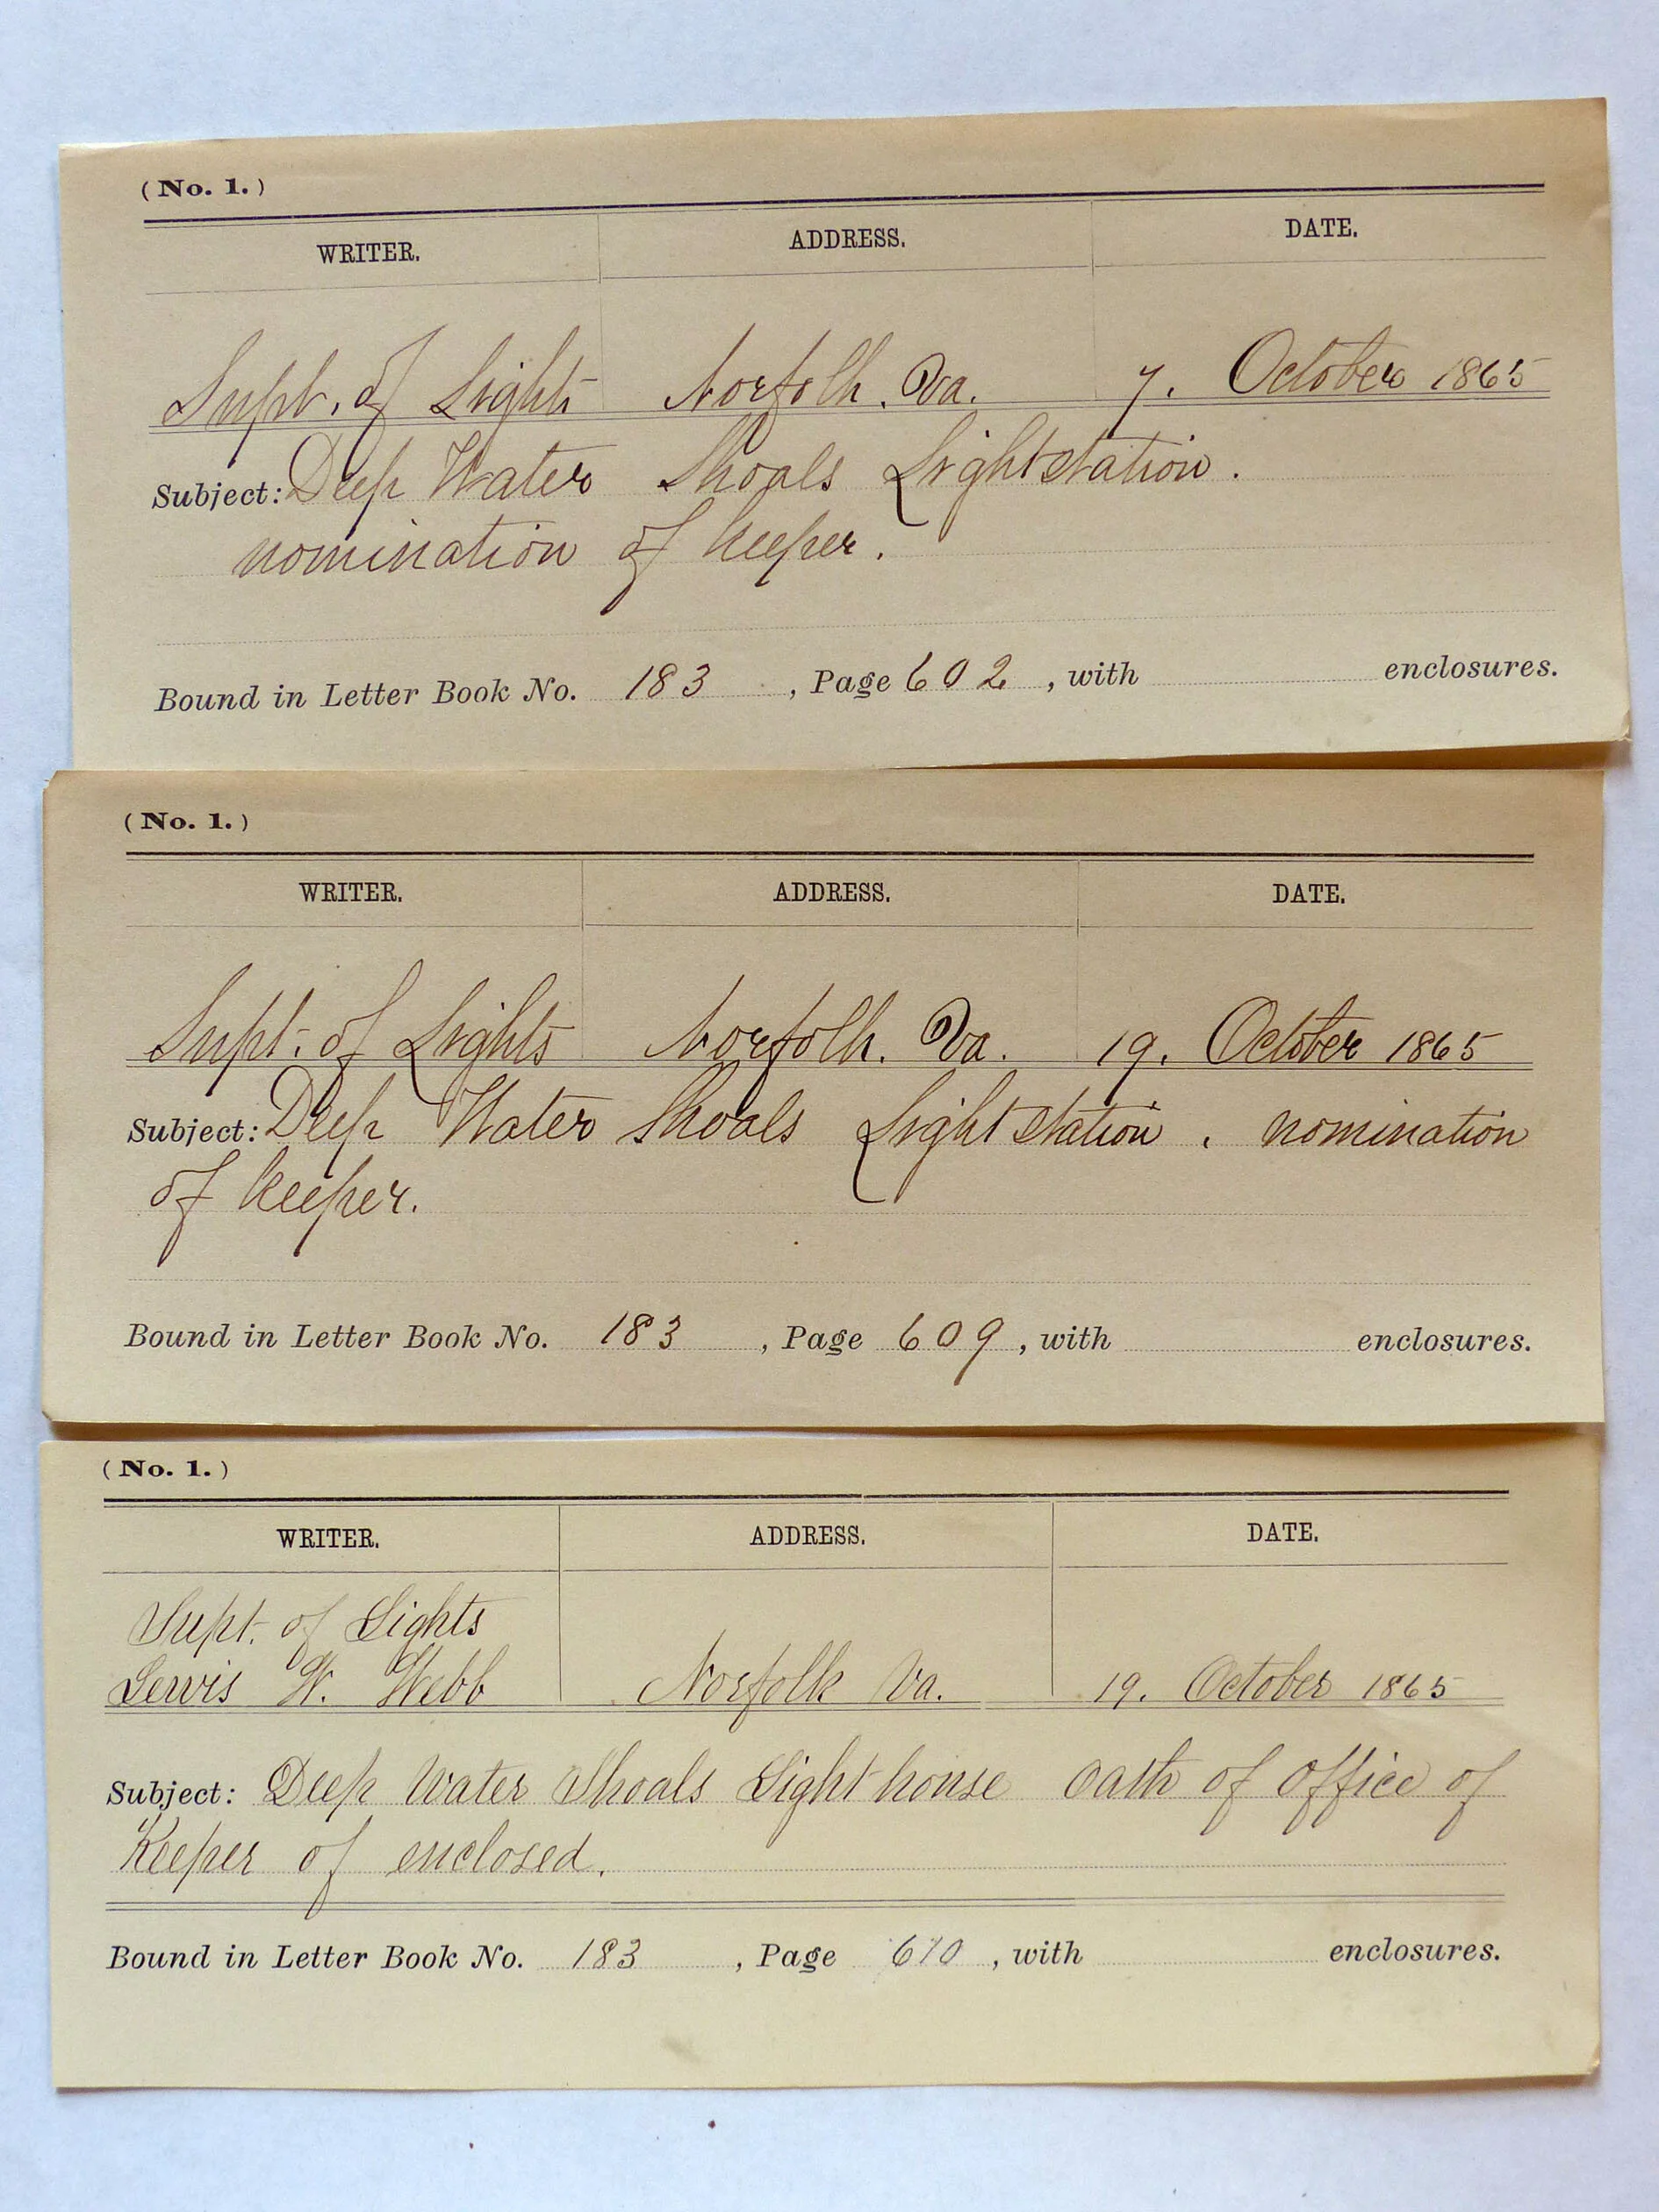 (No. 1.)
WRITER. ADDRESS. DATE.
Supt. of Lights Norfolk. Va. 7. October 1865
Subject: Deep Water Shoals Lightstation.
nomination of keeper.
Bound in Letter Book No. 183, Page 602, with enclosures.
(No. 1.)
WRITER. ADDRESS. DATE.
Supt. of Lights Norfolk. Va. 19. October 1865
Subject: Deep Water Shoals Lightstation. nomination
of keeper.
Bound in Letter Book No. 183, Page 609, with enclosures.
(No. 1.)
WRITER. ADDRESS. DATE.
Supt. of Lights
Lewis W. Webb Norfolk Va. 19. October 1865
Subject: Deep Water Shoals Light house oath of office of
Keeper of enclosed.
Bound in Letter Book No. 183, Page 610, with enclosures.